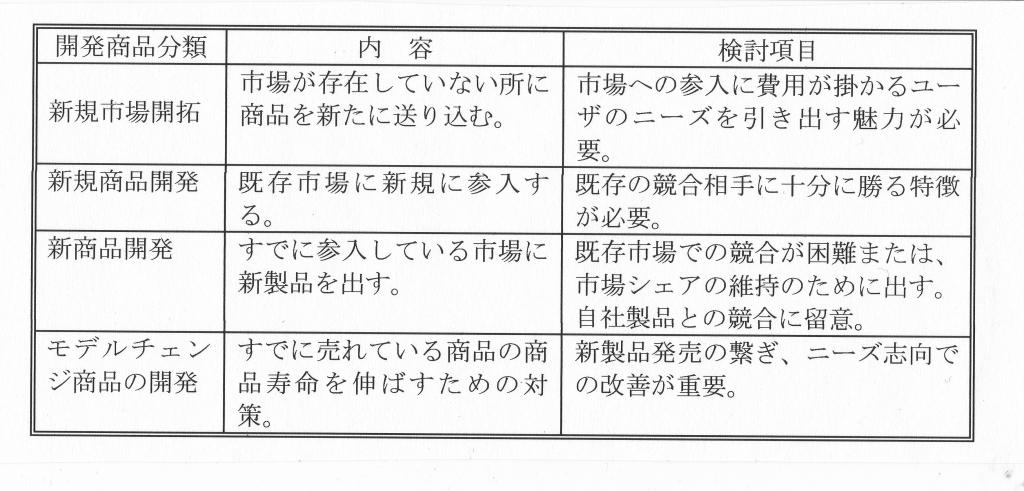 開発商品分類
内　容
検討項目
新規市場開拓
市場が存在していない所に
商品を新たに送り込む。
市場への参入に費用が掛かるユー
ザのニーズを引き出す魅力が必
要。
新規商品開発
既存市場に新規に参入す
る。
既存の競合相手に十分に勝る特徴
が必要。
新商品開発
すでに参入している市場に
新製品を出す。
既存市場での競合が困難または、
市場シェアの維持のために出す。
自社製品との競合に留意。
モデルチェン
ジ商品の開発
すでに売れている商品の商
品寿命を伸ばすための対
策。
新製品発売の繋ぎ、ニーズ志向で
の改善が重要。